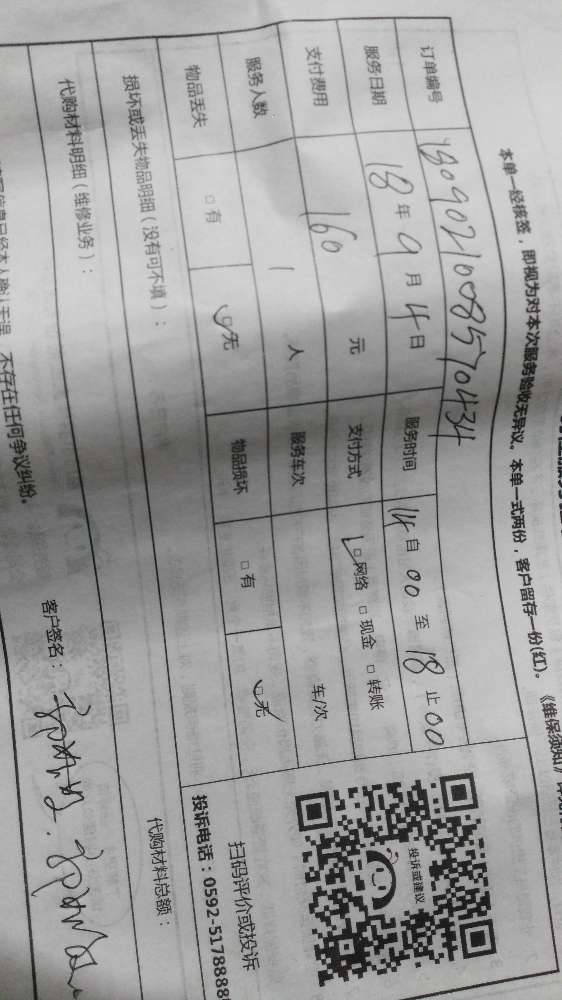 本单一经核签，即视为对本次服务验收无异议。本单一式两份，客户留存一份(红)。《维保须知》
订单编号 180902100857０434
服务日期 18年9月4日 服务时间 14自00至18止00
支付费用 160元 支付方式 □网络 □现金 □转账
服务人数 1人 服务车次 车/次
物品丢失 □有 □无 物品损坏 □有 □无
损坏或丢失物品明细（没有可不填）：
代购材料明细（维修业务）： 代购材料总额：
不存在任何争议纠纷。
客户签名：
投诉或建议
扫码评价或投诉
投诉电话：0592-5178888